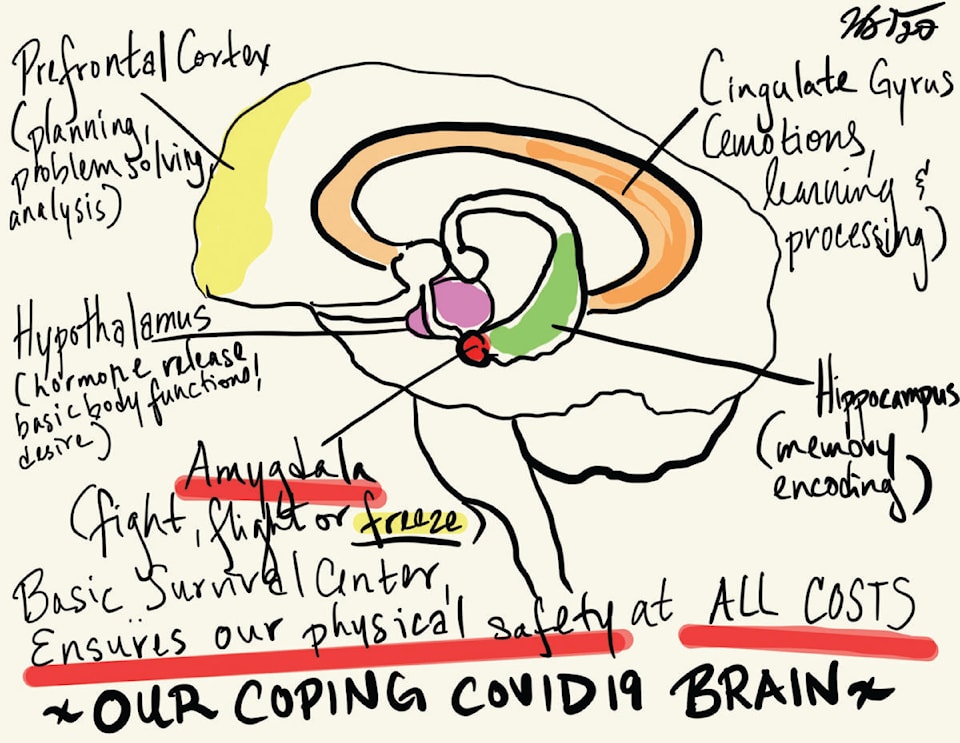 Prefrontal Cortex
(planning,
problem solving,
analysis)
Cingulate Gyrus
(emotions,
learning &
processing)
Hypothalamus
(hormone release
basic body functions,
desire)
Hippocampus
(memory
encoding)
Amygdala
(fight, flight or freeze)
Basic Survival Center,
Ensures our physical safety at ALL COSTS
*OUR COPING COVID19 BRAIN*